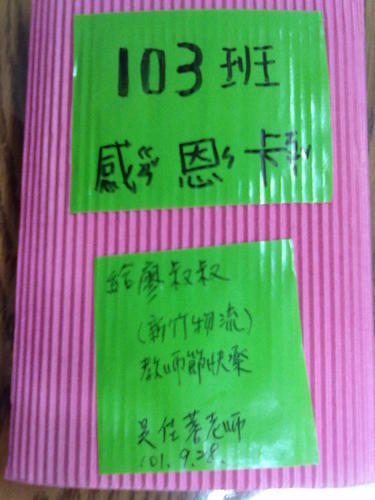 103班
感ㄍㄢˇ恩ㄣ卡ㄎㄚˇ
給廖叔叔
(新竹物流)
教师節快樂
吳佳蓉老师
101.9.28.